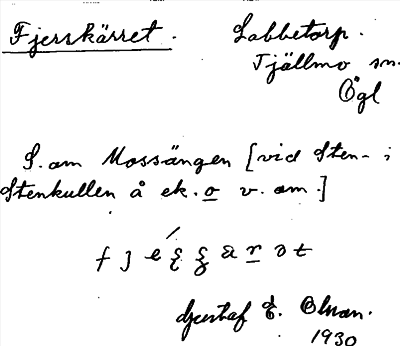 Fjerskärret. Labbetorp.
Tjällmo sn.
Ögl
S. om Mossängen [vid Sten- i
Stenkullen å ek. o v. om.]
Gustaf E. Olson.
1930